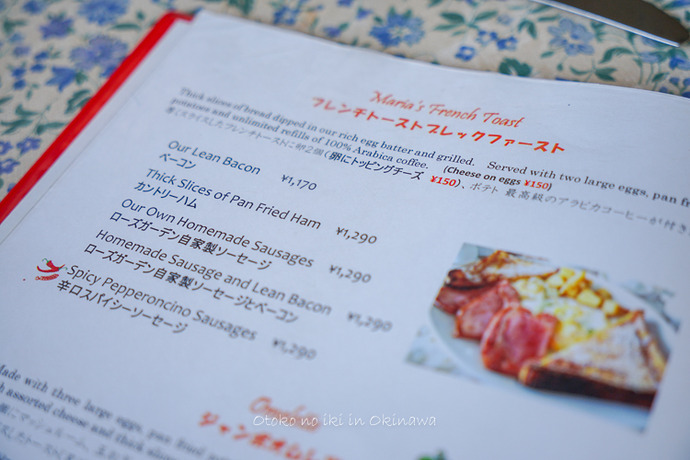 Maria's French Toast
フレンチトーストブレックファースト
Thick slices of bread dipped in our rich egg batter and grilled. Served with two large eggs, pan fr
potatoes and unlimited refills of 100% Arabica coffee. (Cheese on eggs ¥150)
厚くスライスしたフレンチトーストに卵2個(卵にトッピングチーズ ¥150)、ポテト 最高級のアラビカコーヒーが付き
Our Lean Bacon ¥1,170
ベーコン
Thick Slices of Pan Fried Ham ¥1,290
カントリーハム
Our Own Homemade Sausages ¥1,290
ローズガーデン自家製ソーセージ
Homemade Sausage and Lean Bacon ¥1,290
ローズガーデン自家製ソーセージとベーコン
Spicy Pepperoncino Sausages ¥1,290
辛口スパイシーソーセージ
Made with three large eggs, pan fried
assorted cheese and thick
Otoko no iki in Okinawa